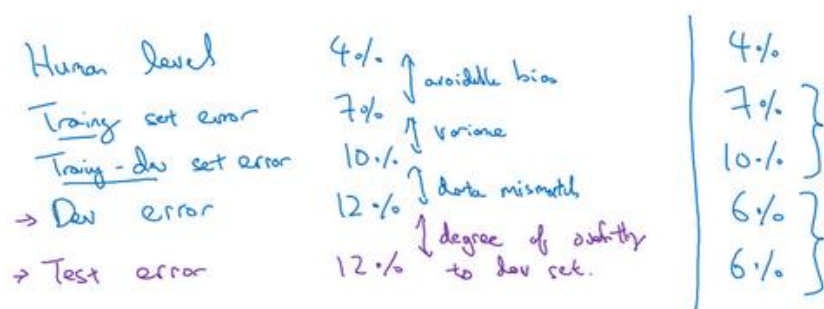 Human level 4% avoidable bias 4%
Training set error 7% variance 7%
Training-dev set error 10% data mismatch 10%
→ Dev error 12% degree of overfitting 6%
→ Test error 12% to dev set. 6%